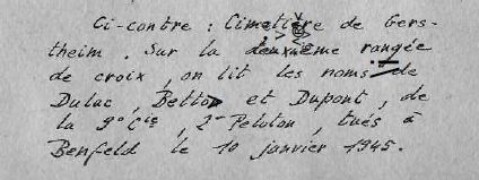 Ci-contre : Cimetière de Gers-
theim. Sur la deuxième rangée
de croix, on lit les noms de
Dulac, Betton et Dupont, de
la 9e Cie, 2e Peloton, tués à
Benfeld le 10 janvier 1945.